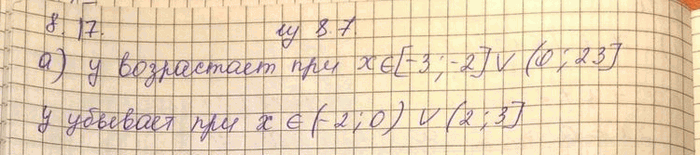 8.17. из 8.7.
а) у возрастает при x∈[-3;-2]∨(0;23]
у убывает при x∈(-2;0)∨(2;3]